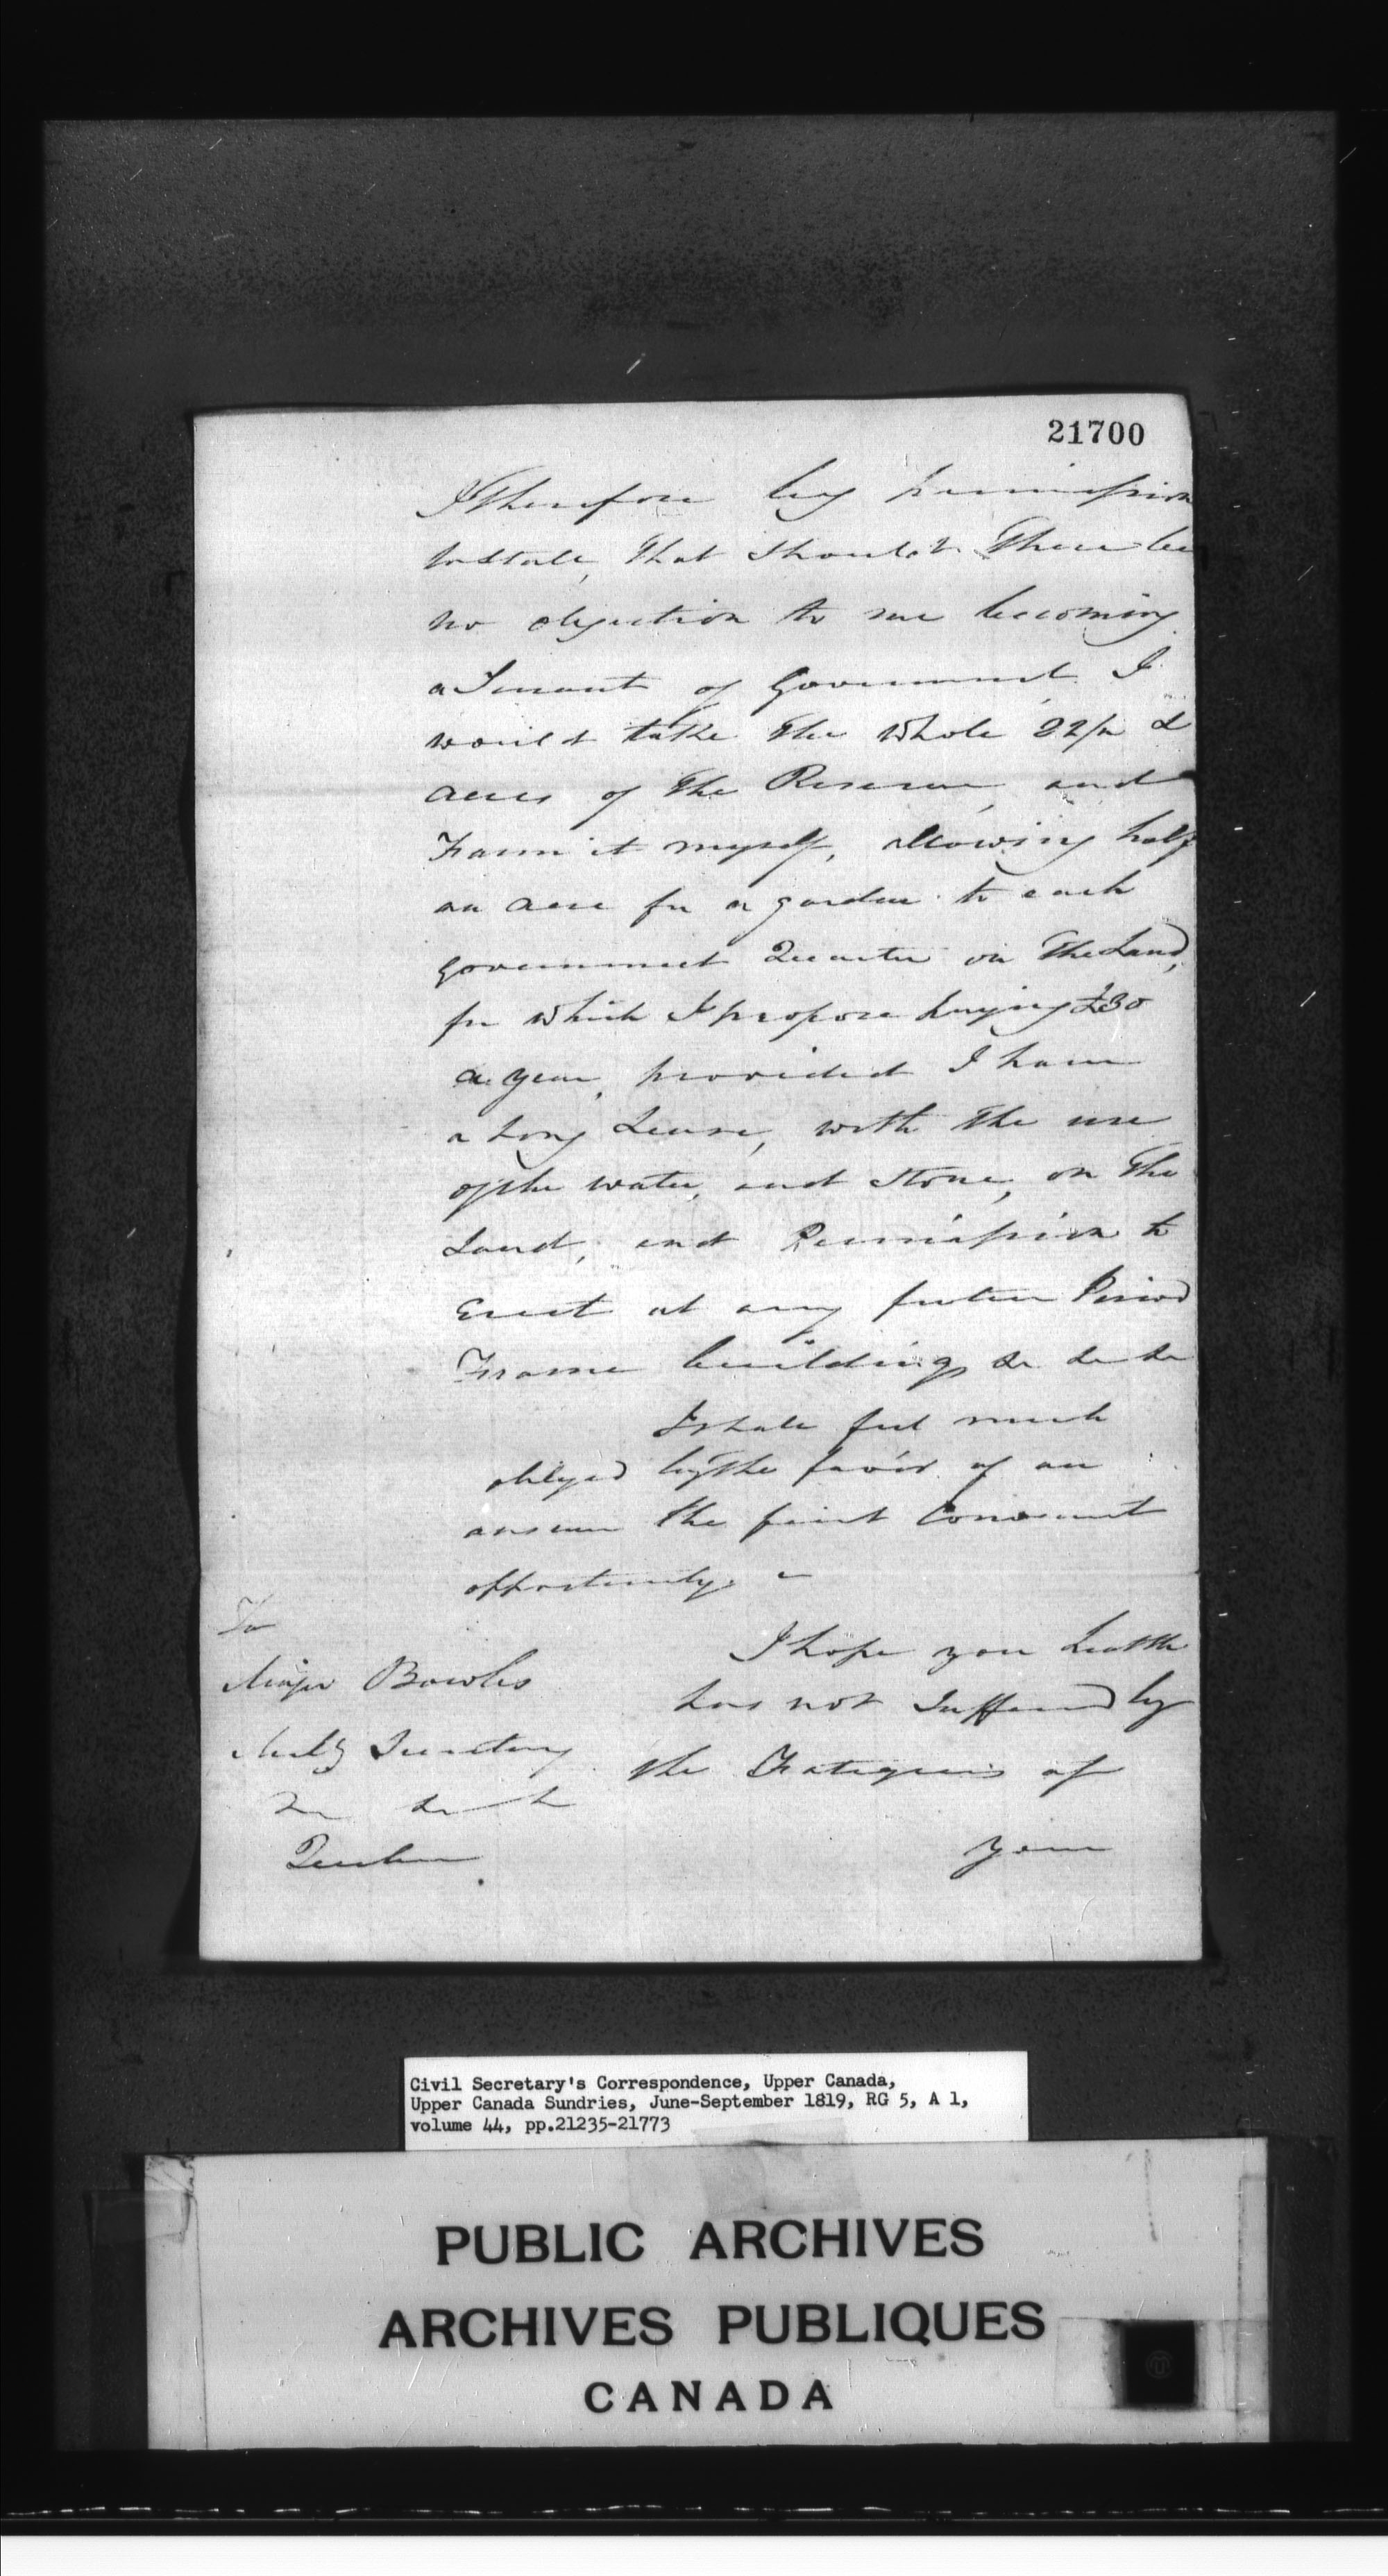 21700
I Therefore beg permission
to State, that should There be
no objection to me becoming
a Tenant of Government I
would take the Whole 22/
acres of the Reserve, and
Farm it myself, allowing half
an acre for a garden to each
government Quarter on The Land,
for which I propose paying £30
a year, provided I have
a Long Lease, with the use
of the water, and Stone, on The
Land, and Permission to
Erect at any future Period
Frame buildings &c &c &c
I shall feel much
obliged by the favor of an
answer the first Convenient
opportunity. -
To
Major Bowles
Mily Secretary
&c &c &c
Quebec
I hope you Health
has not Suffered by
the Fatigues of
your
Civil Secretary's Correspondence, Upper Canada,
Upper Canada Sundries, June-September 1819, RG 5, A 1,
volume 44, pp.21235-21773
PUBLIC ARCHIVES
ARCHIVES PUBLIQUES
CANADA